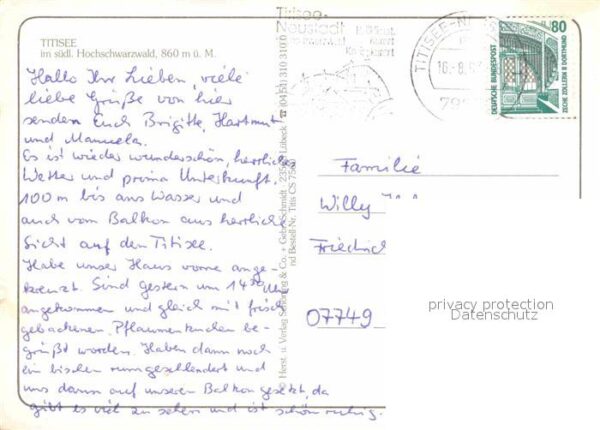 TITISEE
im südl. Hochschwarzwald, 860 m ü. M.
Hallo Ihr Lieben, viele
liebe Grüße von hier
senden Euch Brigitte, Hartmut
und Manuela.
Es ist wieder wunderschön, herrliches
Wetter und prima Unterkunft.
100 m bis ans Wasser und
auch vom Balkon aus herrliche
Sicht auf den Titisee.
Habe unser Haus vorne ange-
kreuzt. Sind gestern um 14 Uhr
angekommen und gleich mit frisch
gebackenen Pflaumenkuchen be-
grüßt worden. Haben dann noch
ein bischen rumgeschlendert und
uns dann auf unseren Balkon gesetzt, da
gibt es viel zu sehen und ist schön ruhig.
© Herst. u. Verlag Schöning & Co. + Gebr. Schmidt · Lübeck ☎ (0451) 310 310
Bestell-Nr. Titis CS
Titisee-
Neustadt
TITISEE-N
80
DEUTSCHE BUNDESPOST
ZECHE ZOLLERN II DORTMUND
Familie
Willy
Friedrich
07749
privacy protection
Datenschutz